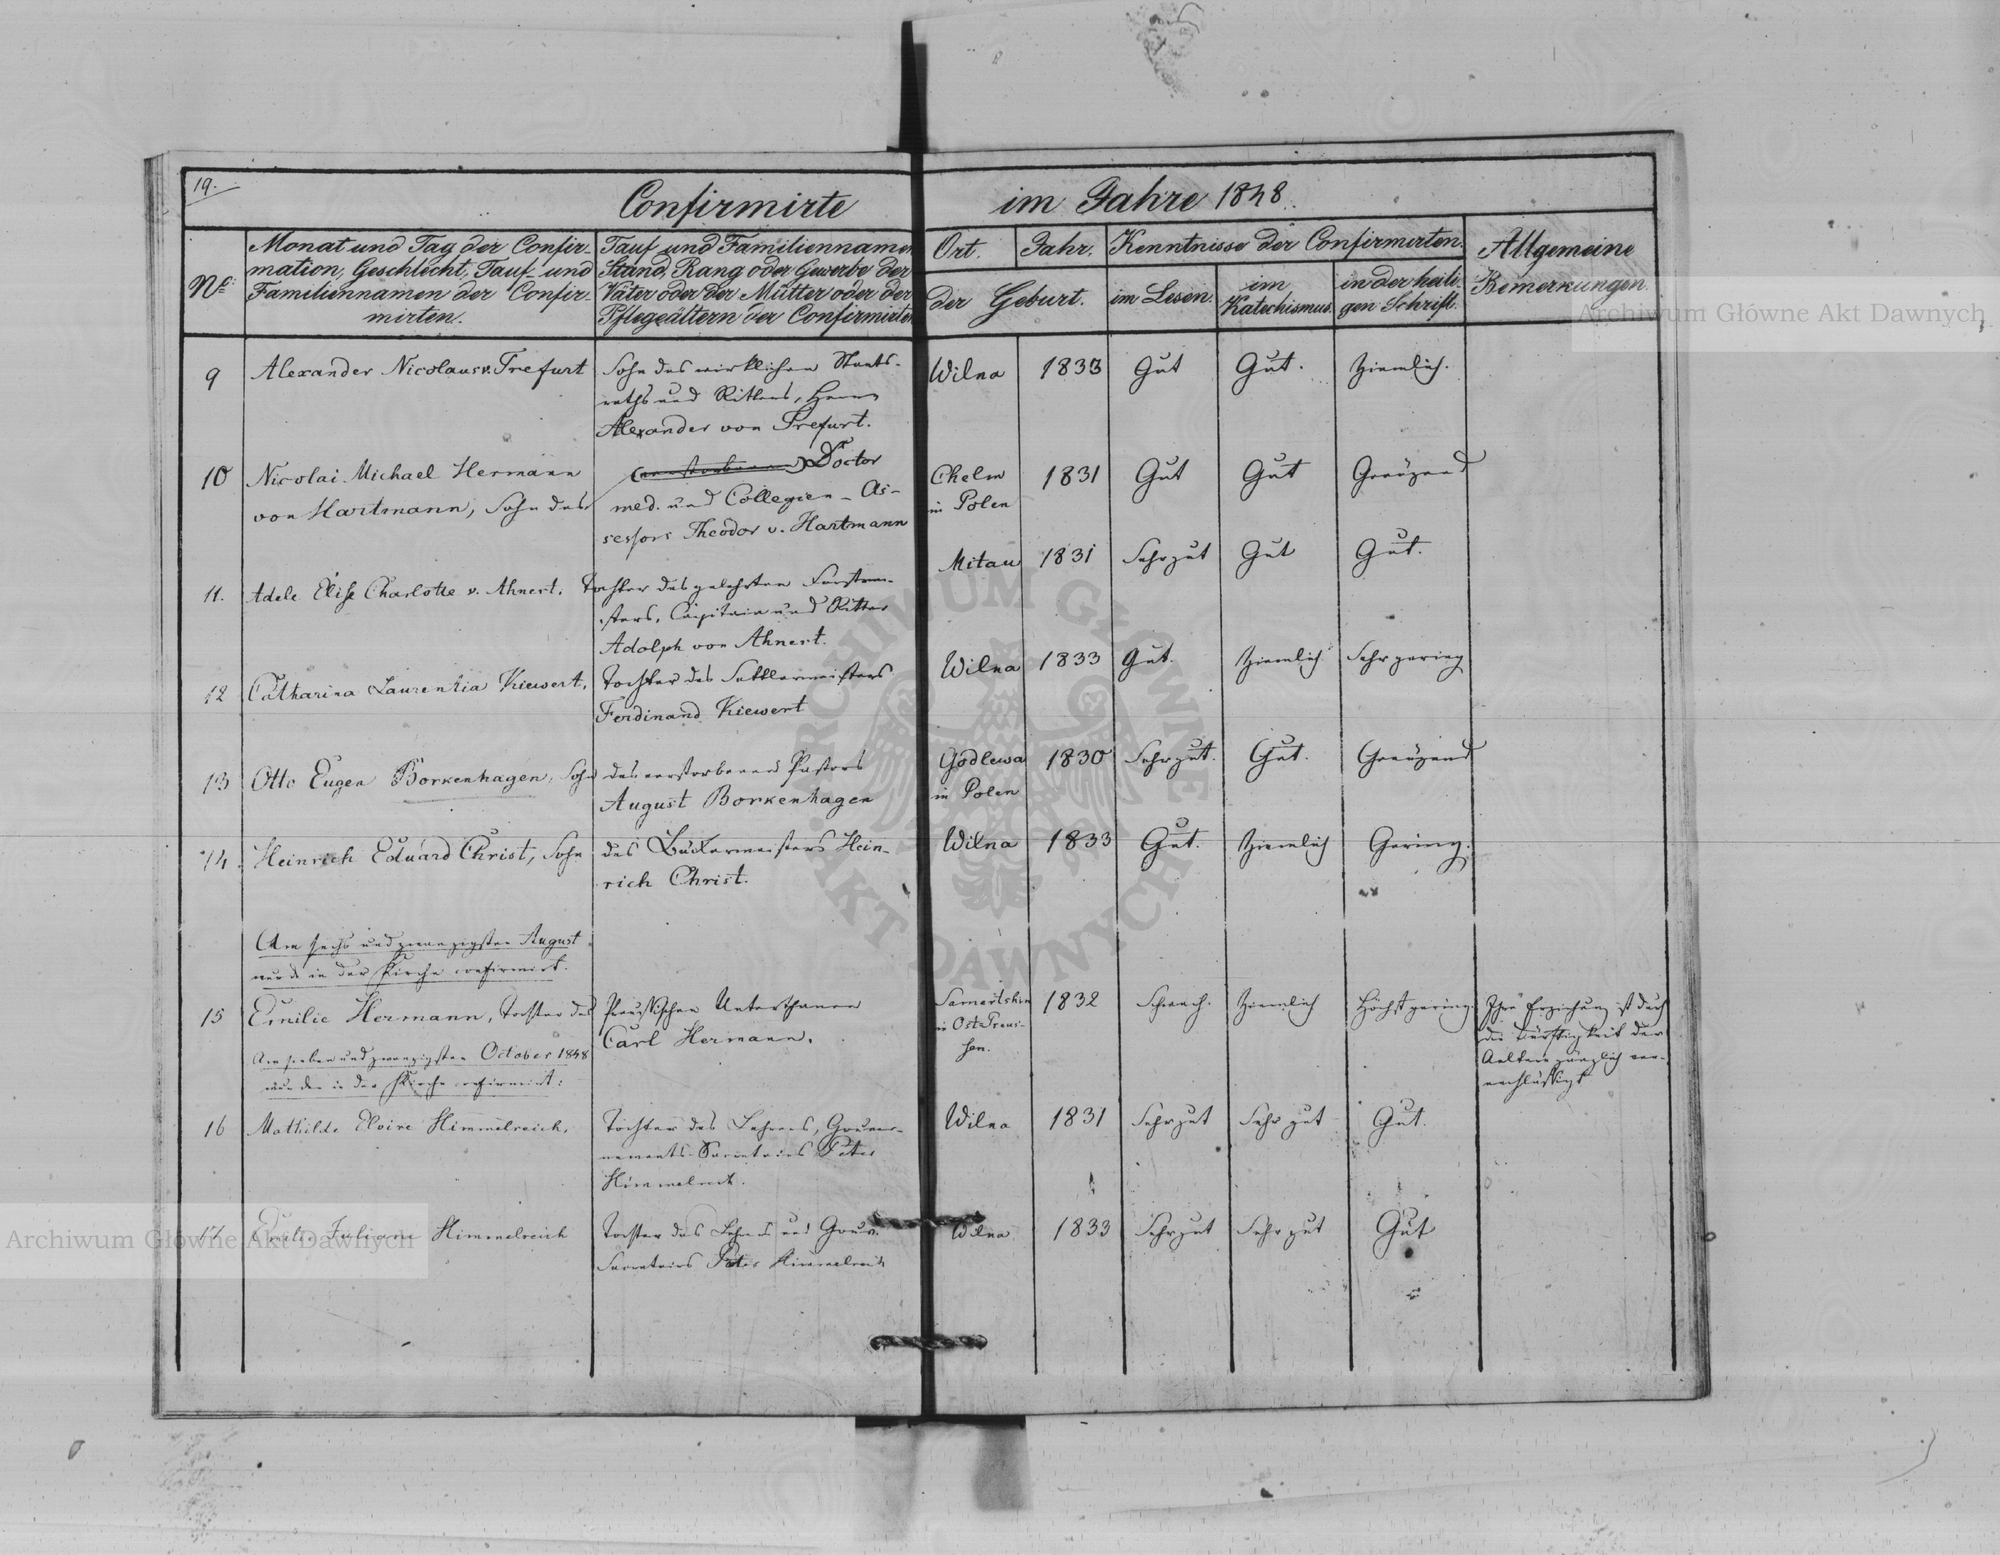 19.
Confirmirte im Jahre 1848.
No:
Monat und Tag der Confir-
mation, Geschlecht, Tauf- und
Familiennamen der Confir-
mirten.
Tauf und Familiennamen
Stand, Rang oder Gewerbe der
Väter oder der Mütter oder der
Pflegeältern der Confirmirten
Ort. Jahr.
der Geburt.
Kenntnisse der Confirmirten.
im Lesen.
im
Katechismus.
in der heili-
gen Schrift.
Allgemeine
Bemerkungen.
9 Alexander Nicolaus v. Trefurt Sohn des wirklichen Staats- Wilna 1833 Gut Gut. Ziemlich.
raths und Ritters, Herrn
Alexander von Trefurt.
10 Nicolai Michael Hermann Doctor Chelm 1831 Gut Gut Genügend
von Hartmann, Sohn des med. und Collegien-As- in Polen
sessors Theodor v. Hartmann
11. Adele Elise Charlotte v. Ahnert, Tochter des gelehrten Forstmei- Mitau 1831 Sehr gut Gut Gut.
sters, Capitain und Ritter
Adolph von Ahnert.
12 Catharina Laurentia Kiewert, Tochter des Sattlermeisters Wilna 1833 Gut. Ziemlich Sehr gering
Ferdinand Kiewert
13 Otto Eugen Borkenhagen, Sohn des verstorbenen Pastors Godlewa 1830 Sehr gut. Gut. Genügend
August Borkenhagen in Polen
14. Heinrich Eduard Christ, Sohn des Bäckermeisters Hein- Wilna 1833 Gut. Ziemlich Gering.
rich Christ.
Am sechs und zwanzigsten August
wurde in der Kirche confirmirt.
15 Emilie Hermann, Tochter des Preußischen Unterthanen 1832 Schwach. Ziemlich Höchst gering. Ihre Erziehung ist durch
Carl Hermann. in Ost Preus- die Dürftigkeit der
sen. Aeltern gänzlich ver-
nachlässigt
Am sieben und zwanzigsten October 1848
wurden in der Kirche confirmirt:
16 Mathilde Elvire Himmelreich, Tochter des Lehrers, Gouver- Wilna 1831 Sehr gut Sehr gut Gut.
nements-Secretairs Peter
Himmelreich.
17 Emilie Juliane Himmelreich Tochter des Lehrers und Gouv. Wilna 1833 Sehr gut Sehr gut Gut
Secretairs Peter Himmelreich
Archiwum Główne Akt Dawnych
Archiwum Główne Akt Dawnych
ARCHIWUM GŁÓWNE AKT DAWNYCH